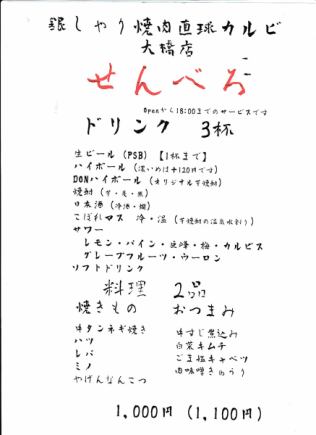 銀しゃり焼肉直球カルビ
大橋店
せんべろ
Openから18:00までのサービスです
ドリンク 3杯
生ビール(PSB)【1杯まで】
ハイボール(濃いめは+120円です)
DONハイボール(オリジナル芋焼酎)
焼酎(芋・麦・黒)
日本酒(冷酒・燗)
こぼれマス 冷・温(芋焼酎の温泉水割り)
サワー
レモン・パイン・巨峰・梅・カルピス
グレープフルーツ・ウーロン
ソフトドリンク
料理 2品
焼きもの おつまみ
牛タンネギ焼き 牛すじ煮込み
ハツ 白菜キムチ
レバ ごま塩キャベツ
ミノ 肉味噌きゅうり
やげんなんこつ
1,000円(1,100円)